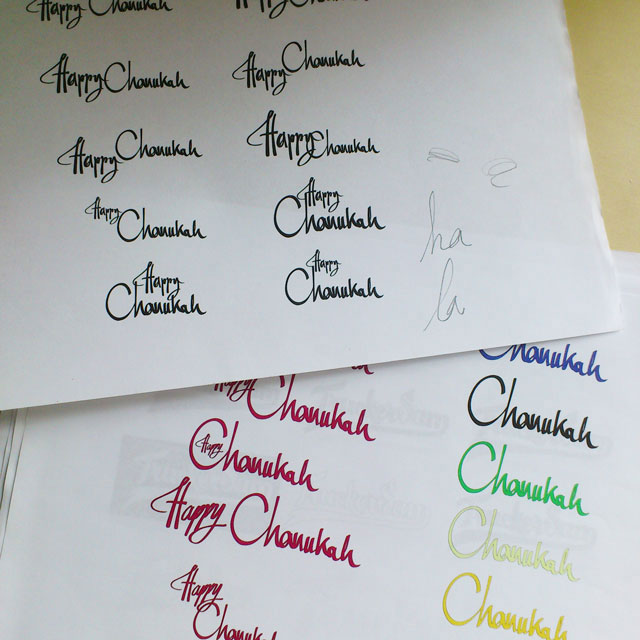 Happy Chanukah
Happy Chanukah
Happy Chanukah
Happy Chanukah
Happy Chanukah
Happy Chanukah
Happy
Chanukah
Happy
Chanukah
Happy
Chanukah
Happy
Chanukah
a
ha
la
Happy
Chanukah
Happy
Chanukah
Happy Chanukah
Happy
Chanukah
Chanukah
Chanukah
Chanukah
Chanukah
Chanukah